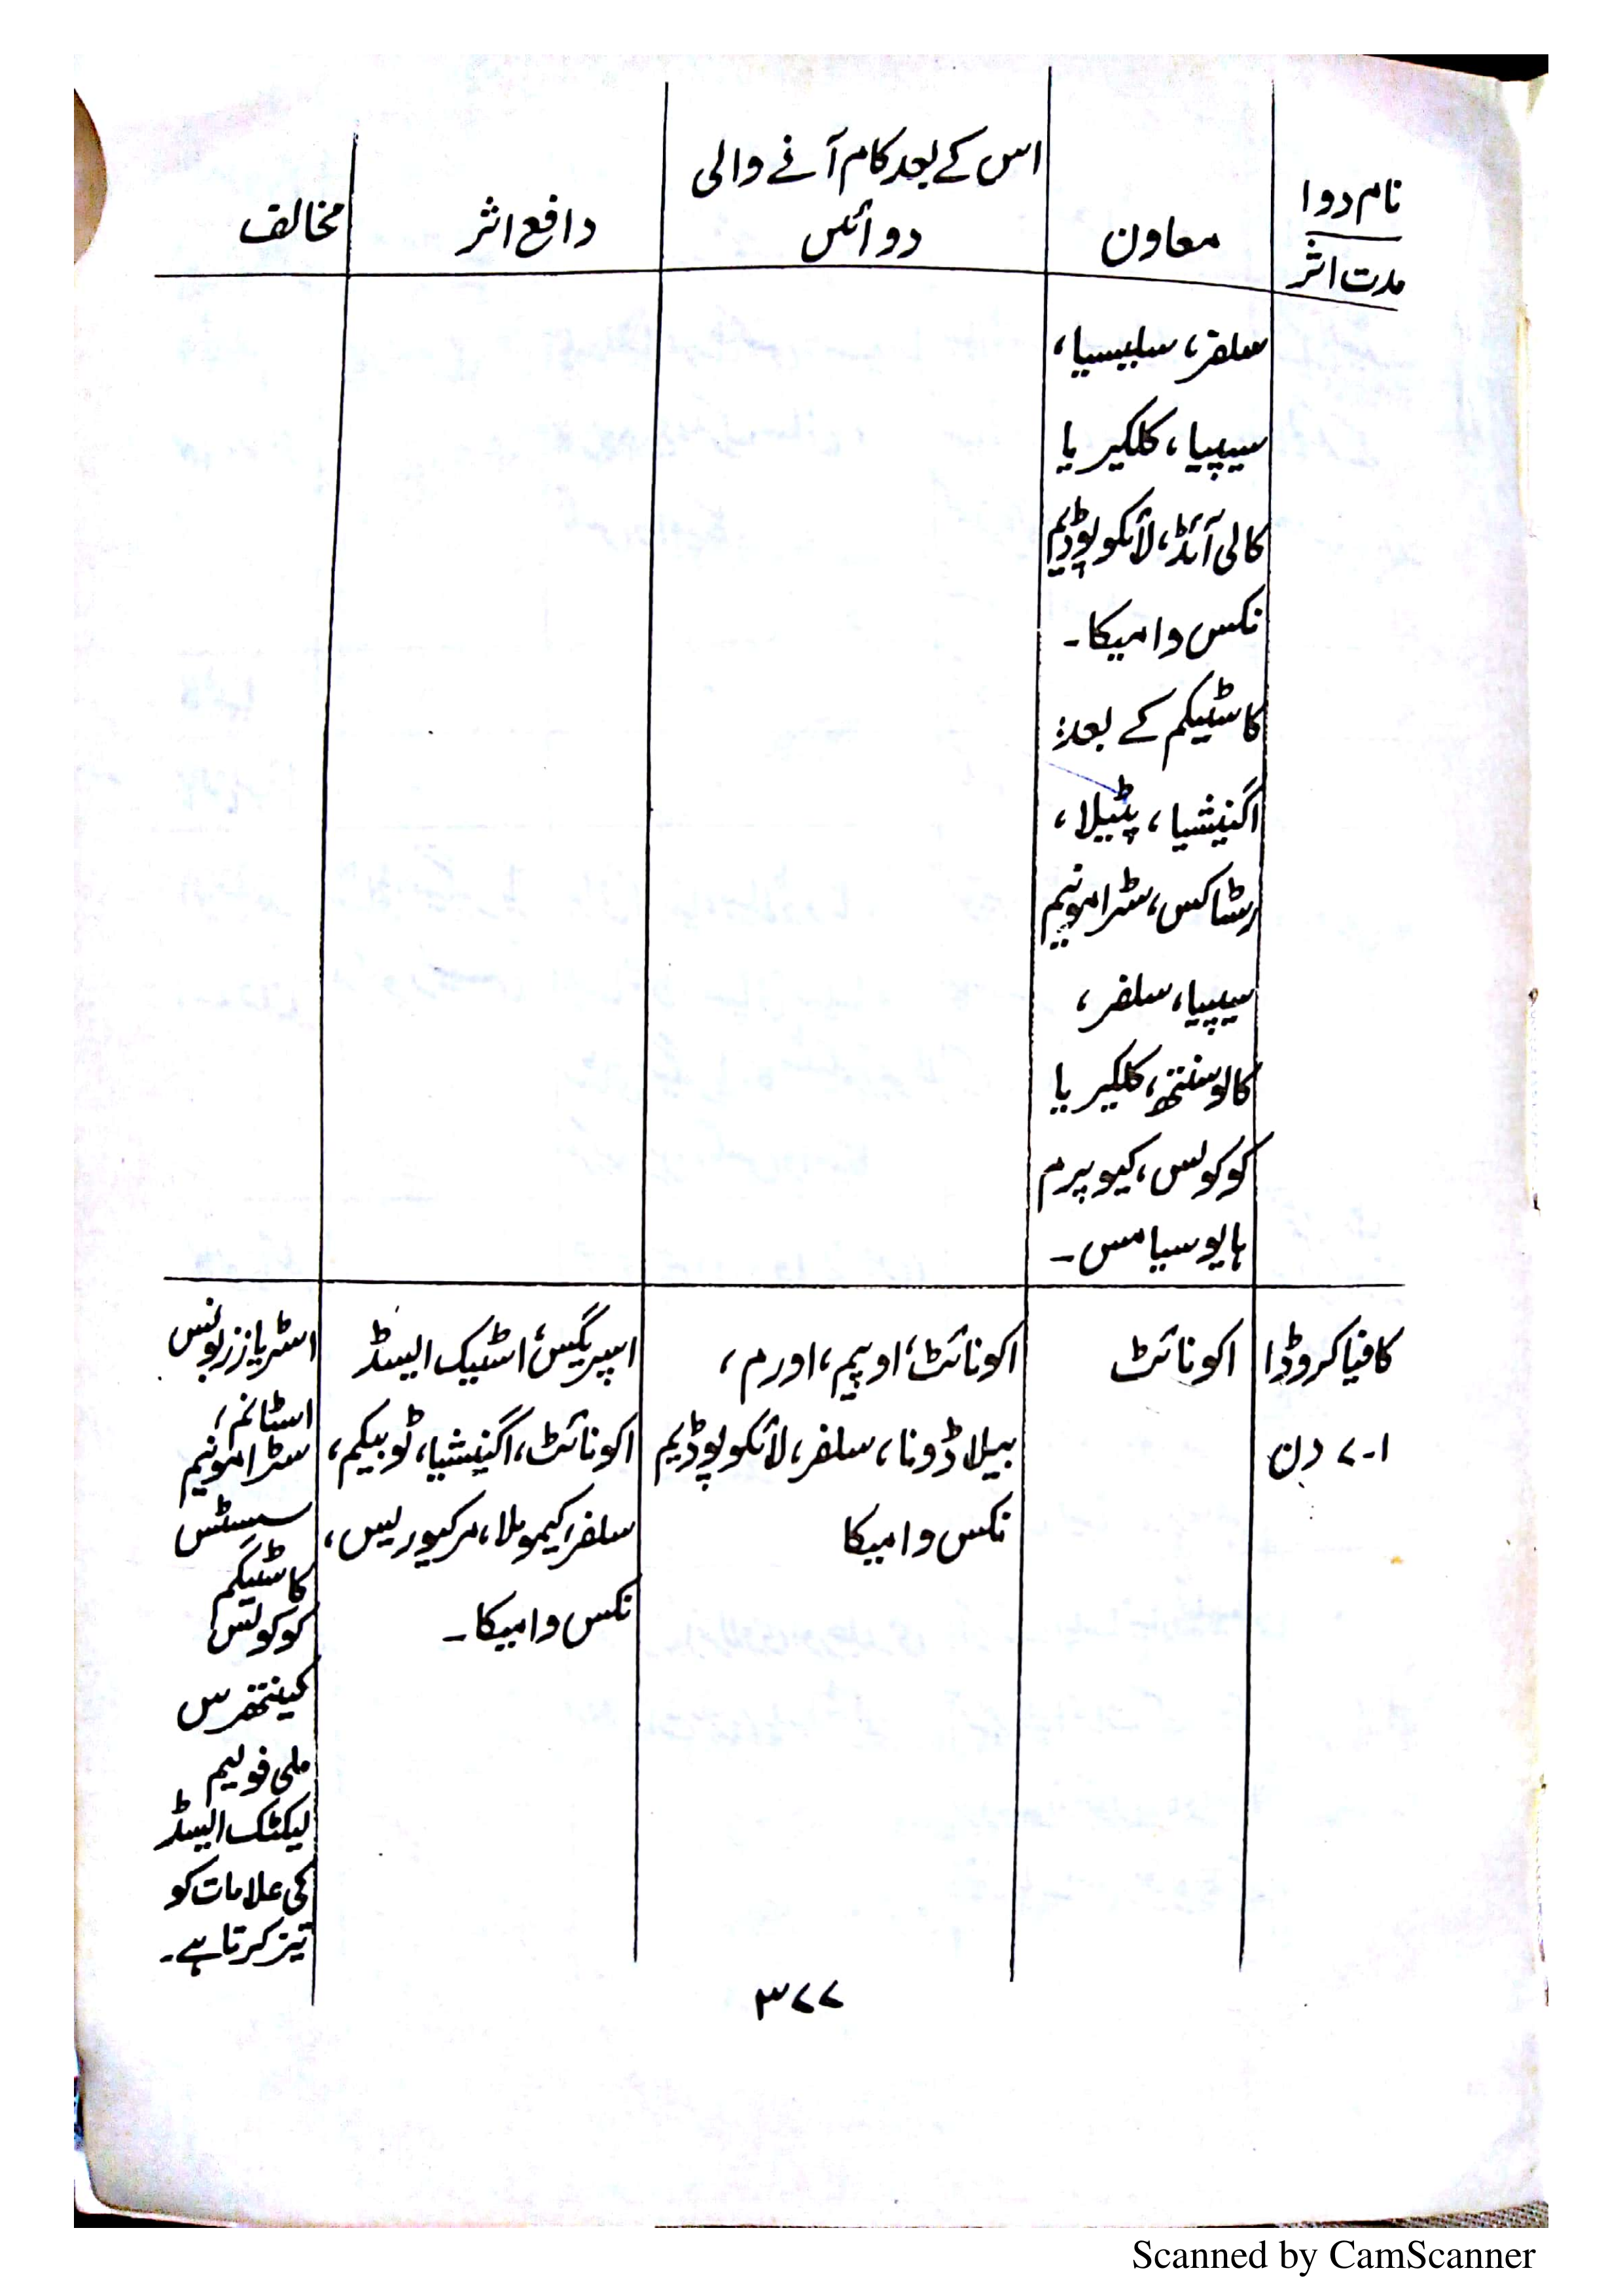 نام دوا
مدت اثر
معاون
اس کے بعد کام آنے والی
دوائیں
دافع اثر
مخالف
سلفر، سلیسیا،
سیپیا، کلکیریا
کالی آئڈ، لائکوپوڈیم
نکس وامیکا۔
کاسٹیکم کے بعد:
اگنیشیا، پٹیلا،
رسٹاکس، سٹرامونیم
سیپیا، سلفر،
کالوسنتھ، کلکیریا
کوکولس، کیوپرم
ہایوسیامس۔
کافیا کروڈا
۱-۷ دن
اکونائٹ
اکونائٹ، اوپیم، اورم،
بیلاڈونا، سلفر، لائکوپوڈیم
نکس وامیکا
اسیٹک ایسڈ
اکونائٹ، اگنیشیا، ٹوبیکم،
سلفر، کیمومِلا، مرکیوریس،
نکس وامیکا۔
اسٹانم،
سٹرامونیم
سسٹس
کاسٹیکم
کوکولس
کینتھرس
ملی فولیم
لیکٹک ایسڈ
کی علامات کو
تیز کرتا ہے۔
۳۷۷
Scanned by CamScanner